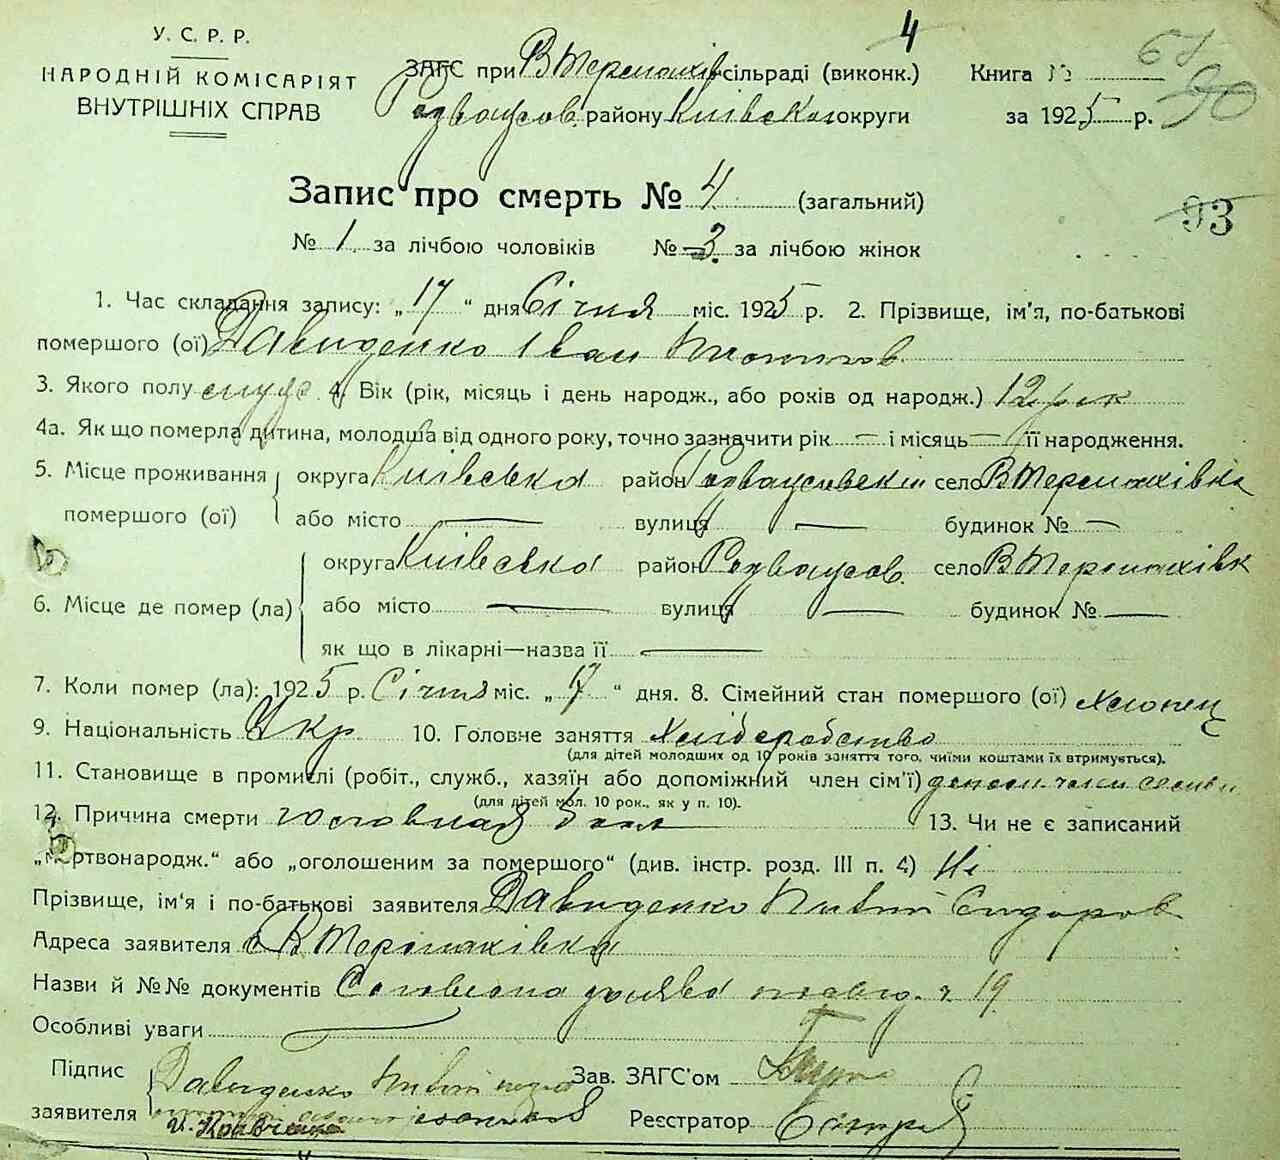 4
У. С. Р. Р.
НАРОДНІЙ КОМІСАРІЯТ
ВНУТРІШНІХ СПРАВ
ЗАГС при В Термахів сільраді (виконк.)
району Київскої округи
Книга №
за 1925 р.
90
Запис про смерть № 4 (загальний)
93
№ 1 за лічбою чоловіків № 3 за лічбою жінок
1. Час складання запису: „17“ дня Січня міс. 1925 р. 2. Прізвище, ім'я, по-батькові
помершого (ої) Давиденко Іван
3. Якого полу муж. 4. Вік (рік, місяць і день народж., або років од народж.) 12 рок
4а. Як що померла дитина, молодша від одного року, точно зазначити рік — і місяць — її народження.
5. Місце проживання помершого (ої) округа Київська район село В Термахівка
або місто — вулиця — будинок № —
6. Місце де помер (ла) округа Київська район село В Термахівк
або місто — вулиця — будинок № —
як що в лікарні—назва її —
7. Коли помер (ла): 1925 р. Січня міс. „17“ дня. 8. Сімейний стан помершого (ої) Хлопец
9. Національність Укр. 10. Головне заняття Хліборобство
(для дітей молодших од 10 років заняття того, чиїми коштами їх втримується).
11. Становище в промислі (робіт., служб., хазяїн або допоміжний член сім'ї)
(для дітей мол. 10 рок., як у п. 10).
12. Причина смерти головная бол 13. Чи не є записаний
„мертвонародж.“ або „оголошеним за помершого“ (див. інстр. розд. III п. 4) Ні
Прізвище, ім'я і по-батькові заявителя Давиденко Сидоров
Адреса заявителя с В Термахівка
Назви й №№ документів Словесна заява 19
Особливі уваги —
Підпис заявителя Давиденко
И. Кравченко
Зав. ЗАГС'ом
Реєстратор